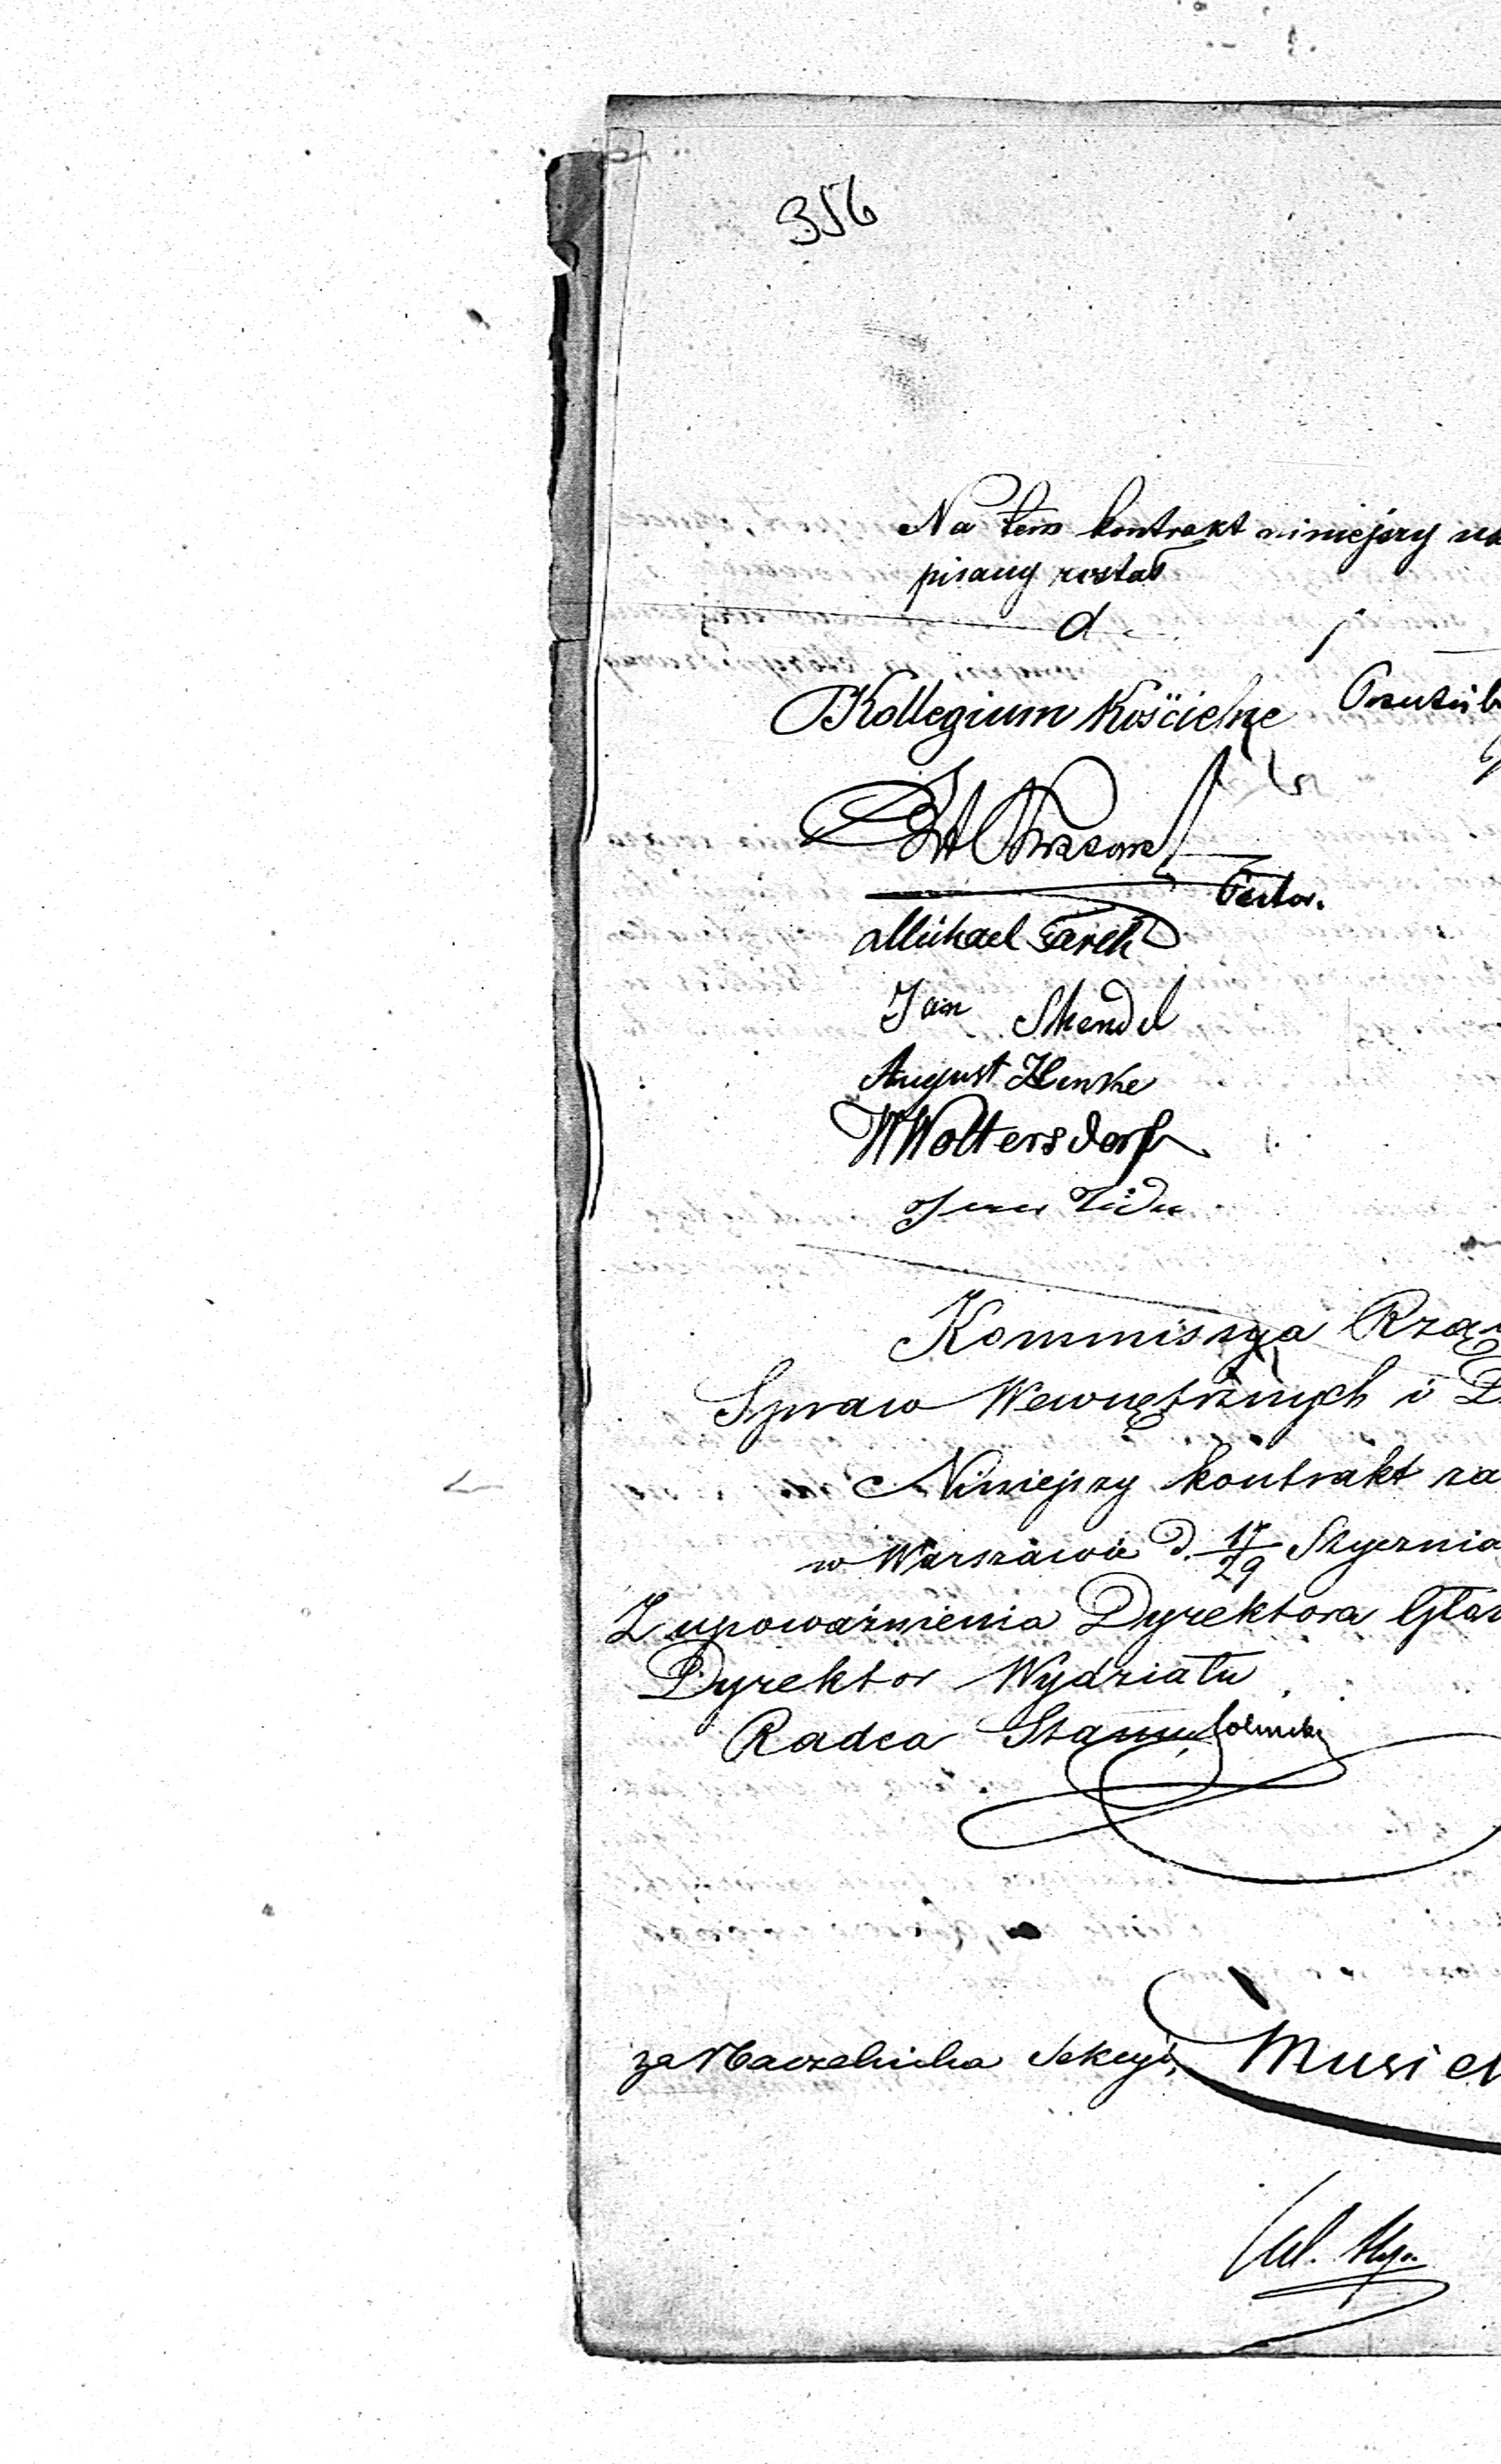 356
Na tem kontrakt niniejszy
pisany został
d
Kollegium Kościelne
Pastor.
Michael
Jan Shendel
August Henke
W Woltersdorf
Kommissya Rzą
Spraw Wewnętrznych i D
Niniejszy kontrakt za
w Warszawie d. 17/29 Stycznia
Z upoważnienia Dyrektora Głów
Dyrektor Wydziału
Radca Stanu
za Naczelnika Sekcyi,